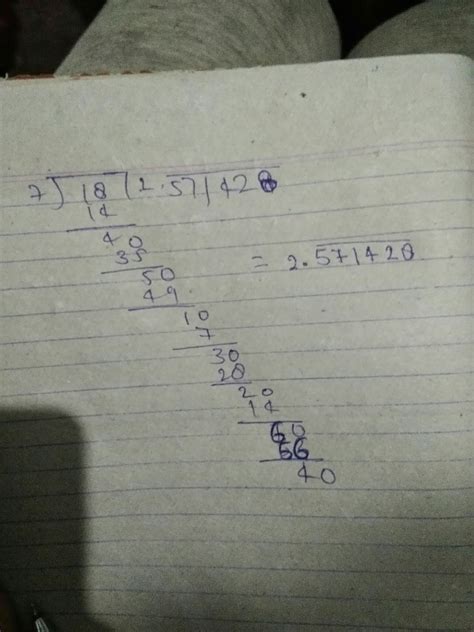 7)18(2.571428
14
40
35
= 2.571428
50
49
10
7
30
28
20
14
60
56
40